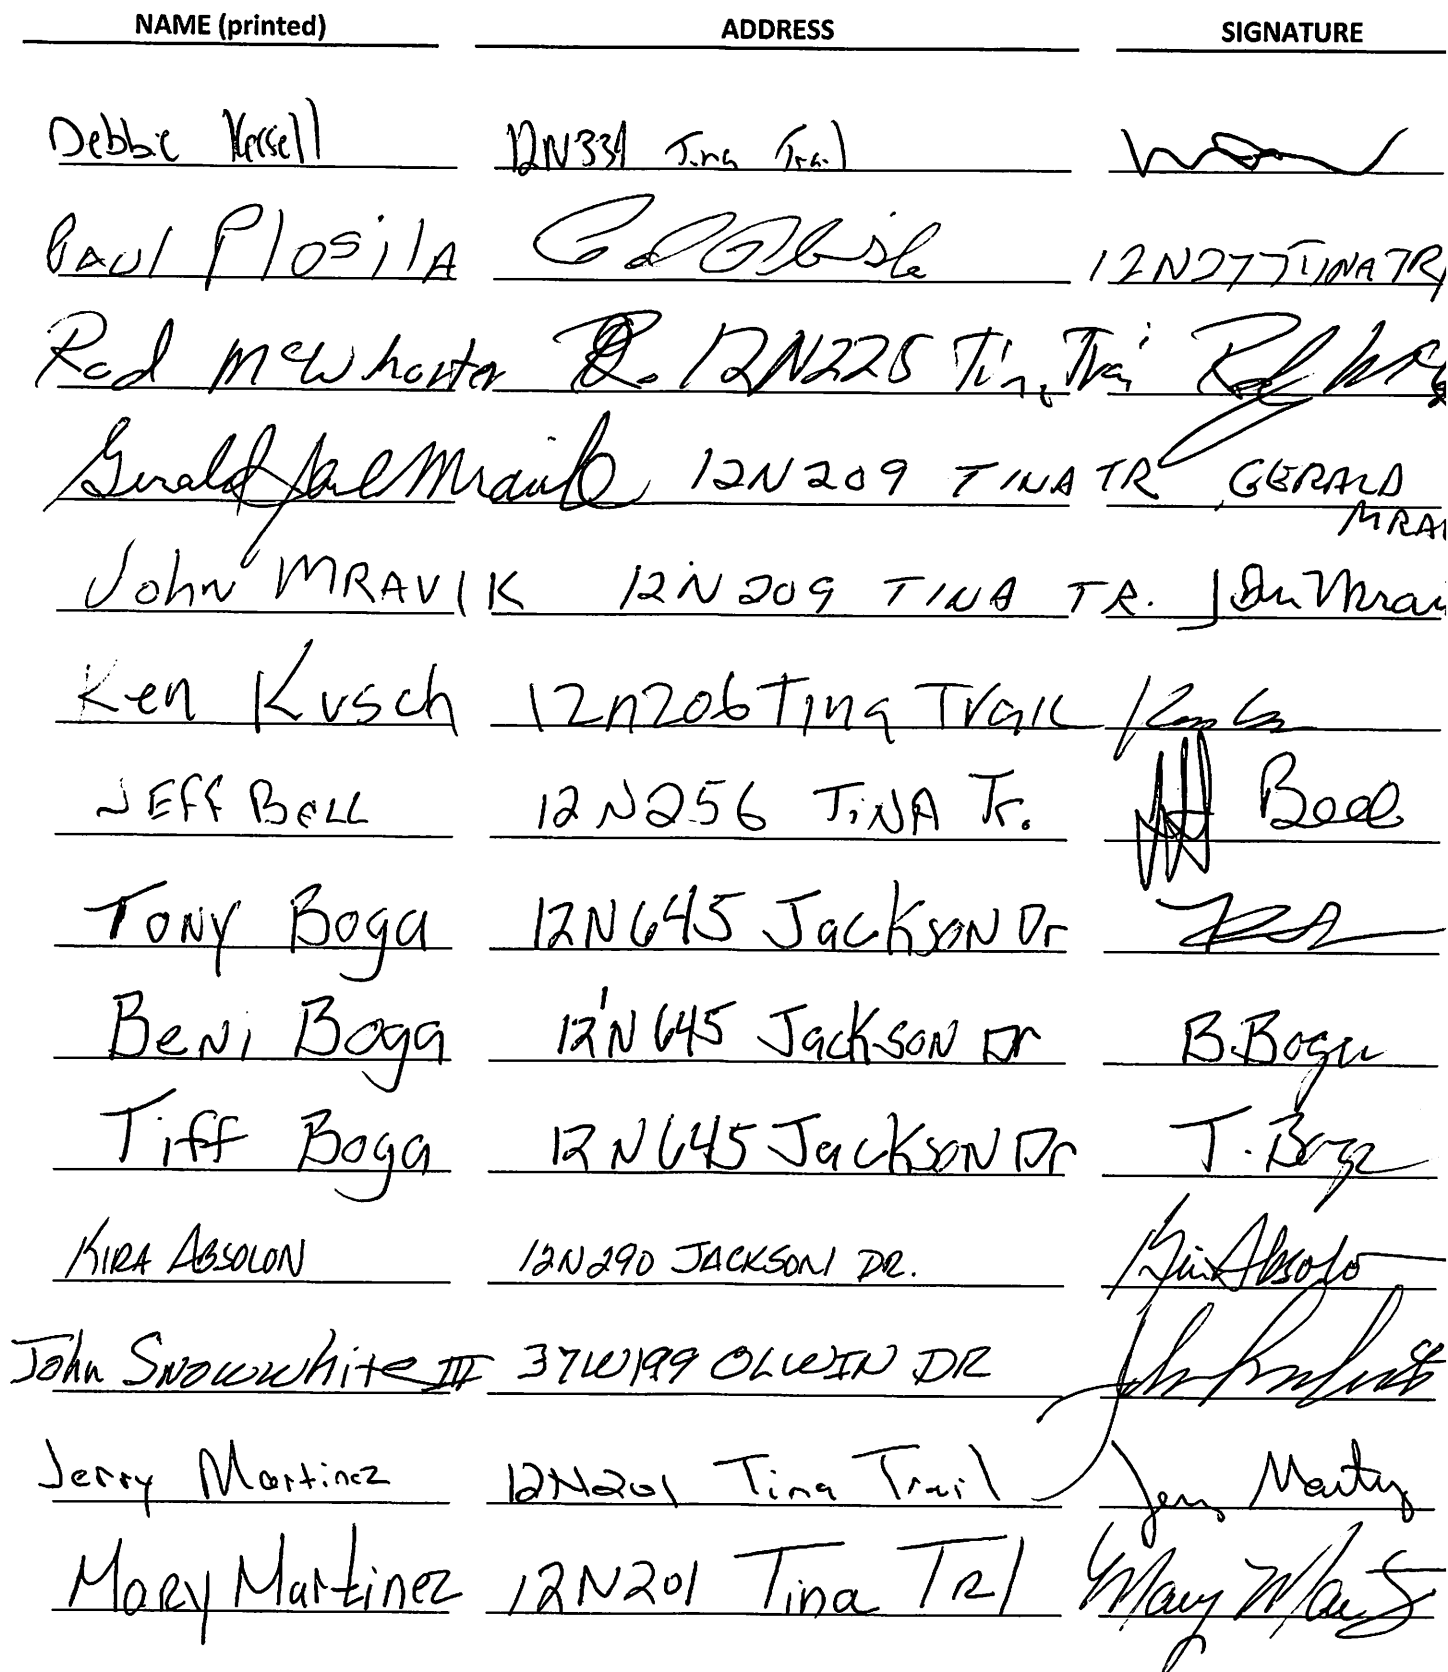 NAME (printed) ADDRESS SIGNATURE
Debbie Kessell 12N339 Tina Trail
PAUl PlosilA 12N277 TINA TRl
Rod McWhorter R. 12N225 Tina Trai
Gerald Mravik 12N209 TINA TR GERALD
MRAV
John MRAVIK 12N209 TINA TR. John Mravi
Ken Kusch 12n206 Tina TraiL
JEff BELL 12N256 TiNA Tr. Jeff Bell
TONY Boga 12N645 JacksoN Dr
BeNi Boga 12N645 JacksoN Dr B.Boga
Tiff Boga 12N645 JacksoN Dr T. Boga
KIRA ABSOLON 12N290 JACKSON DR. Kira Absolo
John Snowwhite III 37W199 OLWIN DR
Jerry Martinez 12N201 Tina Trail Jerry Martz
MARy Martinez 12N201 Tina TRl Mary Mart